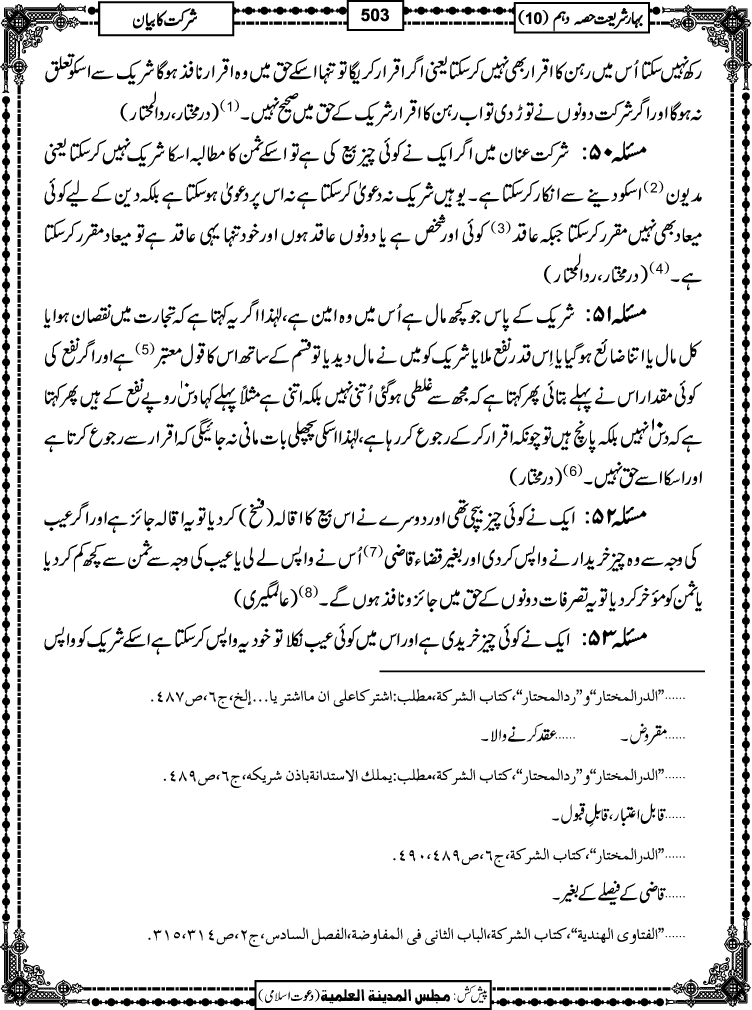 بہار شریعت حصہ دہم (10)
503
شرکت کا بیان
رکھ نہیں سکتا اُس میں رہن کا اقرار بھی نہیں کر سکتا یعنی اگر اقرار کریگا تو تنہا اسکے حق میں وہ اقرار نافذ ہوگا شریک سے اسکو تعلق
نہ ہوگا اور اگر شرکت دونوں نے توڑ دی تو اب رہن کا اقرار شریک کے حق میں صحیح نہیں۔(1) (درمختار، ردالمحتار)
مسئلہ ۵۰: شرکت عنان میں اگر ایک نے کوئی چیز بیع کی ہے تو اسکے ثمن کا مطالبہ اسکا شریک نہیں کر سکتا یعنی
مدیون(2) اسکو دینے سے انکار کر سکتا ہے۔ یوہیں شریک نہ دعویٰ کر سکتا ہے نہ اس پر دعویٰ ہو سکتا ہے بلکہ دین کے لیے کوئی
میعاد بھی نہیں مقرر کر سکتا جبکہ عاقد(3) کوئی اور شخص ہے یا دونوں عاقد ہوں اور خود تنہا یہی عاقد ہے تو میعاد مقرر کر سکتا
ہے۔(4) (درمختار، ردالمحتار)
مسئلہ ۵۱: شریک کے پاس جو کچھ مال ہے اُس میں وہ امین ہے، لہٰذا اگر یہ کہتا ہے کہ تجارت میں نقصان ہوا یا
کل مال یا اتنا ضائع ہوگیا یا اِس قدر نفع ملا یا شریک کو میں نے مال دیدیا تو قسم کے ساتھ اس کا قول معتبر(5) ہے اور اگر نفع کی
کوئی مقدار اس نے پہلے بتائی پھر کہتا ہے کہ مجھ سے غلطی ہوگئی اُتنی نہیں بلکہ اتنی ہے مثلاً پہلے کہا دس۱۰ روپے نفع کے ہیں پھر کہتا
ہے کہ دس۱۰ نہیں بلکہ پانچ ہیں تو چونکہ اقرار کرکے رجوع کر رہا ہے، لہٰذا اسکی پچھلی بات مانی نہ جائیگی کہ اقرار سے رجوع کرتا ہے
اور اسکا اسے حق نہیں۔(6) (درمختار)
مسئلہ ۵۲: ایک نے کوئی چیز بیچی تھی اور دوسرے نے اس بیع کا اقالہ (فسخ) کر دیا تو یہ اقالہ جائز ہے اور اگر عیب
کی وجہ سے وہ چیز خریدار نے واپس کر دی اور بغیر قضاء قاضی(7) اُس نے واپس لے لی یا عیب کی وجہ سے ثمن سے کچھ کم کر دیا
یا ثمن کو مؤخر کر دیا تو یہ تصرفات دونوں کے حق میں جائز و نافذ ہوں گے۔(8) (عالمگیری)
مسئلہ ۵۳: ایک نے کوئی چیز خریدی ہے اور اس میں کوئی عیب نکلا تو خود یہ واپس کر سکتا ہے اسکے شریک کو واپس
......”الدرالمختار“ و”ردالمحتار“،کتاب الشرکة،مطلب:اشترکاعلی ان مااشتر یا...إلخ،ج٦،ص٤٨٧.
......مقروض۔ ......عقد کرنے والا۔
......”الدرالمختار“ و”ردالمحتار“،کتاب الشرکة،مطلب:یملك الاستدانة باذن شریکه،ج٦،ص٤٨٩.
......قابلِ اعتبار، قابلِ قبول۔
......”الدرالمختار“،کتاب الشرکة،ج٦،ص٤٨٩،٤٩٠.
......قاضی کے فیصلے کے بغیر۔
......”الفتاوی الهندیة“،کتاب الشرکة،الباب الثانی فی المفاوضة،الفصل السادس،ج٢،ص٣١٤،٣١٥.
پیش کش: مجلس المدینة العلمیة (دعوت اسلامی)